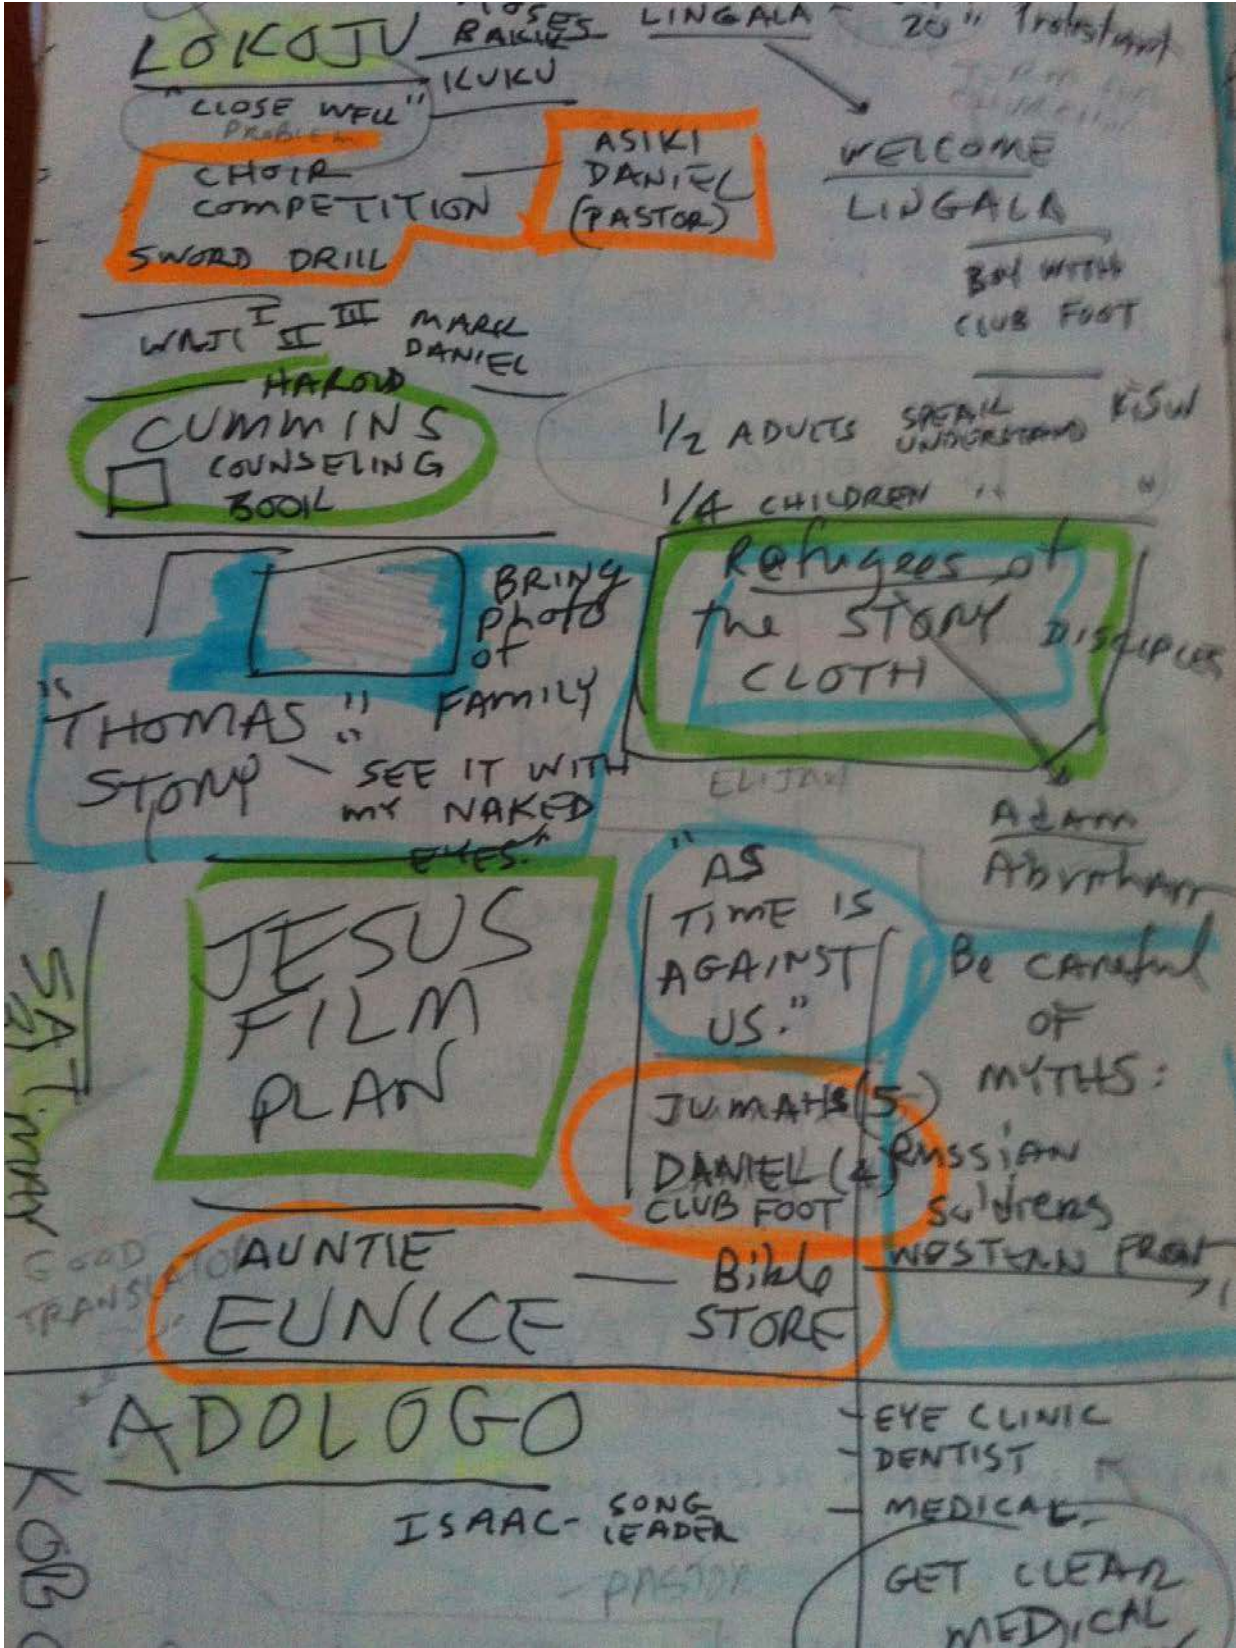 LOKOJU
MOSES
BAKIL
KUKU
LINGALA -
20" Protestant
"CLOSE WELL"
PROBLEM
CHOIR
COMPETITION
SWORD DRILL
ASIKI
DANIEL
(PASTOR)
WELCOME
LINGALA
BOY WITH
CLUB FOOT
I II III MARK
DANIEL
HAROLD
CUMMINS
COUNSELING
BOOK
1/2 ADULTS SPEAK UNDERSTAND KiSW
1/4 CHILDREN " "
BRING
PhoTo
OF
FAMILY
"THOMAS"
STORY - SEE IT WITH
MY NAKED
EYES."
Refugees of
the STORY
CLOTH
DISCIPLES
ELIJAH
Adam
Abraham
JESUS
FILM
PLAN
"AS
TIME IS
AGAINST
US."
Be CAReful
OF
MYTHS:
RUSSIAN
Soldiers
WESTERN FRONT
JUMAHS (5)
DANIEL (4)
CLUB FOOT
SAT
GOOD
TRANSLATOR
AUNTIE
EUNICE - Bible
STORE
ADOLOGO
ISAAC - SONG
LEADER
PASTOR
- EYE CLINIC
- DENTIST
- MEDICAL
GET CLEAR
MEDICAL
KOB